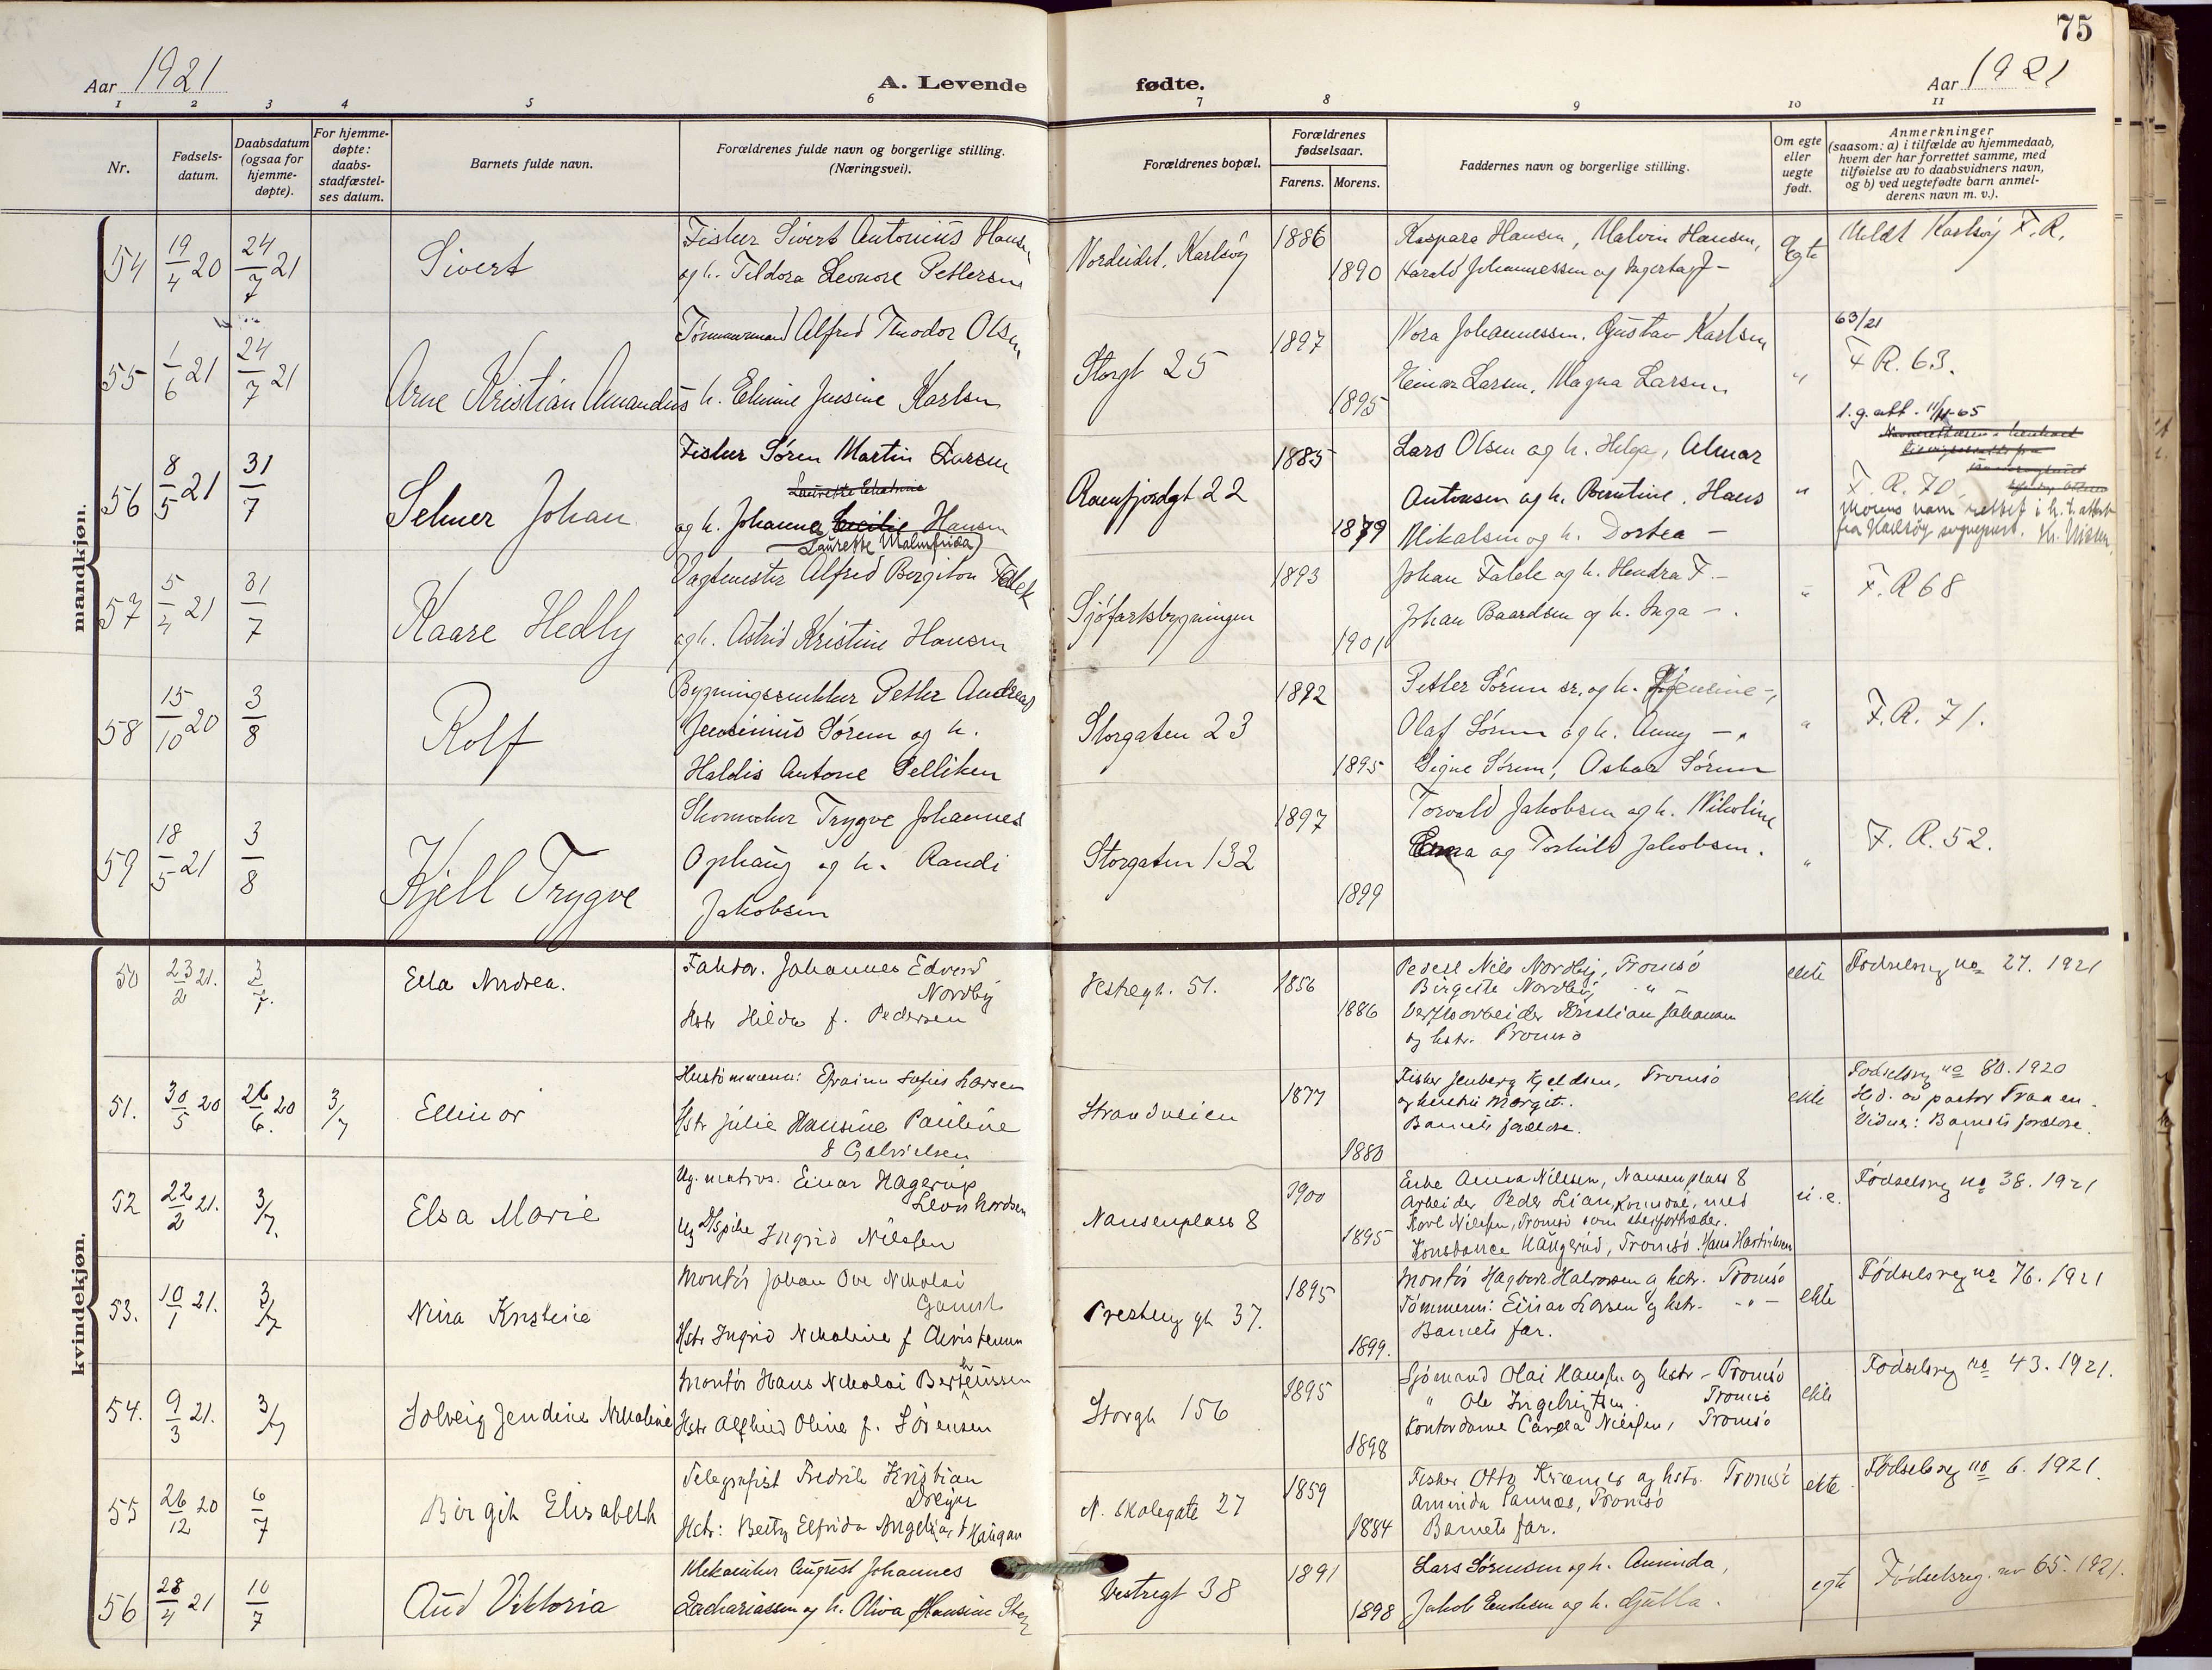 75
Aar 1921
A. Levende fødte.
Aar 1921
1 2 3 4 5 6 7 8 9 10 11
Nr.
Fødsels-
datum.
Daabsdatum
(ogsaa for
hjemme-
døpte).
For hjemme-
døpte:
daabs-
stadfæstel-
ses datum.
Barnets fulde navn.
Forældrenes fulde navn og borgerlige stilling.
(Næringsvei).
Forældrenes bopæl.
Forældrenes
fødselsaar.
Farens. Morens.
Faddernes navn og borgerlige stilling.
Om egte
eller
uegte
født.
Anmerkninger
(saasom: a) i tilfælde av hjemmedaab,
hvem der har forrettet samme, med
tilføielse av to daabsvidners navn,
og b) ved uegtefødte barn anmel-
derens navn m. v.).
mandkjøn.
54 19/4 20 24/7 21 Sivert
Fisker Sivert Antonius Hansen
og h. Tildora Leonore Pettersen
Nordeidet, Karlsøy
1886
1890
Kaspara Hansen, Malvin Hansen,
Harald Johannessen og Ingertag J –
Egte
Meldt Karlsøy F. R.
55 1/6 21 24/7 21 Arne Kristian Amandus
Tømmermand Alfred Theodor Olsen
h. Elmine Jensine Karlsen
Storgt 25
1897
1895
Nora Johannessen, Gustav Karlsen
Einar Larsen, Magna Larsen
"
63/21
F R. 63.
56 8/5 21 31/7 Selmer Johan
Fisker Søren Martin Larsen
og h. Johanna Cecilie Hansen
Laurette Malmfrida)
Ramfjordgt 22
1885
1879
Lars Olsen og h. Helga, Almar
Antonsen og h. Berntine, Hans
Mikalsen og h. Dortea –
"
1. g. att. 11/11-65
F. R. 70
Morens navn rettet i h. t. attest
fra Karlsøy sogneprest.
57 5/4 21 31/7 Kaare Hedly
Vagtmester Alfred Bergiton Falck
og h. Astrid Kristine Hansen
Sjøfartsbygningen
1893
1901
Johan Falck og h. Hendra F. –
Johan Baardsen og h. Inga – .
"
F. R 68
58 15/10 20 3/8 Rolf
Bygningssnekker Petter Andreas
Jensinius Sørem og h.
Haldis Antone Pelliken
Storgaten 23
1892
1895
Petter Sørem sr. og h. Jensine –,
Olaf Sørem og h. Anny – "
Signe Sørem, Oskar Sørem
"
F. R. 71.
59 18/5 21 3/8 Kjell Trygve
Skomaker Trygve Johannes
Ophaug og h. Randi
Jakobsen
Storgaten 132
1897
1899
Torvald Jakobsen og h. Nikoline
Erna og Torhild Jakobsen.
"
F. R. 52.
kvindekjøn.
50 23/2 21. 3/7. Ella Andrea.
Faktor. Johannes Edvard
Nordby
Hstr Hilda f. Pedersen
Vestregt. 51.
1856
1886
Pedell Nils Nordby, Tromsø
Birgitte Nordby, " –
Verftsarbeider Kristian Johansen
og hstr. Tromsø
ekte
Fødselsreg no 27. 1921
51. 30/5 20 26/6. 20 3/7 Ellinor
Hustømmerm: Efraim Sofus Larsen
Hstr Julie Hansine Pauline
f Gabrielsen
Strandveien
1877
1880
Fisker Jenberg Kjeldsen, Tromsø
og hustru Margit.
Barnets foreldre.
ekte
Fødselsreg no 80. 1920
Hd. av pastor Tranen.
Vidner: Barnets foreldre.
52 22/2 21. 3/7. Elsa Marie
Ug. matros. Einar Hagerup
Leonhardsen
Ug Pike Ingrid Nilssen
Nansenplass 8
1900
1895
Enke Anna Nilssen, Nansenplass 8
Arbeider Peder Lian, Kvindal, med
Karl Nilssen, Tromsø som stedfortræder.
Konstance Haugerud, Tromsø.
u. e.
Fødselsreg no 38. 1921
53. 10/1 21. 3/7 Nina Kristine
Montør Johan Ove Nikolai
Hstr Ingrid Nikoline f
Presteng gt 37.
1895
1899.
Montør Hagbart Halvorsen og hstr. Tromsø
Tømmerm: Einar Larsen og hstr. – " –
Barnets far.
ekte
Fødselsreg no 76. 1921
54. 9/3 21. 3/7 Solveig Jendine Nikoline
Montør Hans Nikolai Bertheussen
Hstr Alfhild Oline f. Sørensen
Storgt 156
1895
1898
Sjømand Olai Hansen og hstr – Tromsø
" Ole Ingebrigtsen. Tromsø
Kontordame Carola Nilssen, Tromsø
ekte
Fødselsreg no 43. 1921.
55 26/12 20 6/7 Birgit Elisabeth
Telegrafist Fredrik Kristian
Dreyer
Hstr: Betty Elfrida Angelica f Haugan
N. Skolegate 27
1859
1884
Fisker Otto Kræmer og hstr. Tromsø
Aminda Sannes, Tromsø
Barnets far.
ekte.
Fødselsreg no 6. 1921.
56 28/4 21 10/7 Aud Viktoria
Mekaniker August Johannes
Zachariassen og h. Oliva Hansine
Vestregt 38
1891
1898
Lars Sørensen og h. Aminda,
Jakob Enoksen og h. Gulla.
egte
Fødselsreg. no 65. 1921.